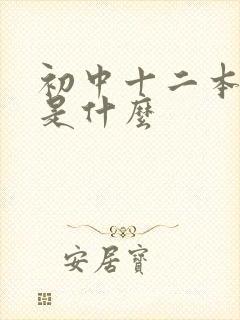 初中十二本
是什麼
安居寶